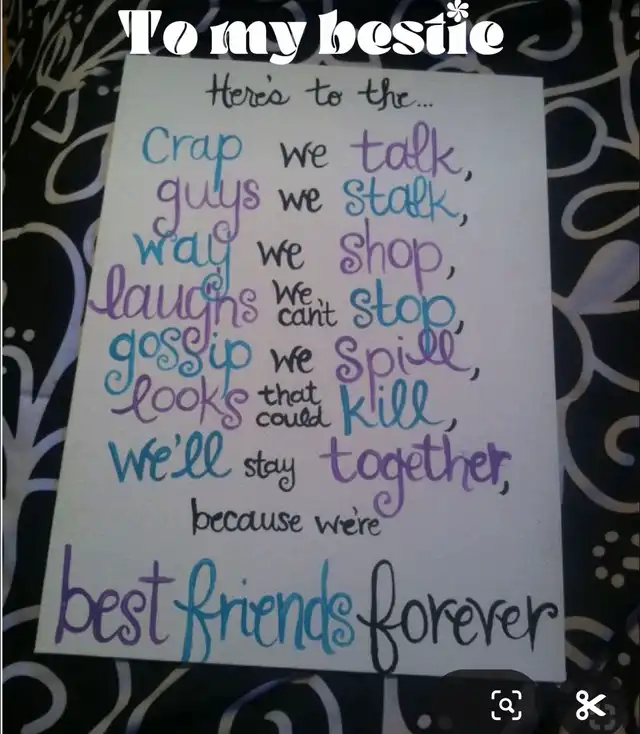 To my bestie
Here's to the...
Crap we talk,
guys we stalk,
way we shop,
laughs we can't stop,
gossip we spill,
looks that could kill,
we'll stay together,
because we're
best friends forever